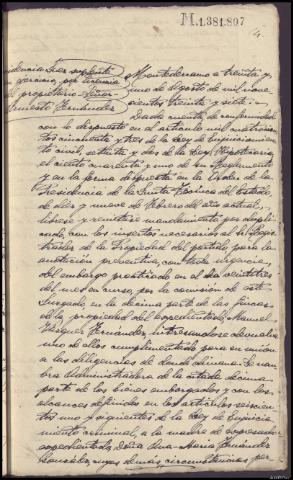 M.1.381.807
4.
Providencia Juez suplente
ejerciente, por licencia
del propietario, Señor
Ernesto Fernández
Monterderramo a treinta y
uno de Agosto de mil nove-
cientos treinta y siete.-
Dada cuenta, de conformidad
con lo dispuesto en el artículo mil cuatrocien-
tos cincuenta y tres de la Ley de Enjuiciamien-
to civil, setenta y dos de la Ley Hipotecaria,
el ciento cuarenta y uno de su Reglamento
y en la forma dispuesta en la Orden de la
Presidencia de la Junta Técnica del Estado
de diez y nueve de Febrero del año actual,
líbrese y remítase mandamiento por dupli-
cado, con los insertos necesarios al Sr. Regis-
trador de la Propiedad del partido para la
anotación preventiva, con toda urgencia,
del embargo practicado en el día veintitres
del mes en curso, por la comisión de este
Juzgado, en la décima parte de las fincas
de la propiedad del expedientado, Manuel
Blanquez Fernández, interesándose devuelva
uno de ellos cumplimentado para su unión
a las diligencias de donde dimana. Se nom-
bra administradora de la citada décima
parte de los bienes embargados y con los
alcances definidos en los artículos seiscien-
tos uno y siguientes de la Ley de Enjuicia-
miento criminal, a la madre de expresado
expedientado, Doña Ana-María Fernández
González, cuyas demás circunstancias per-